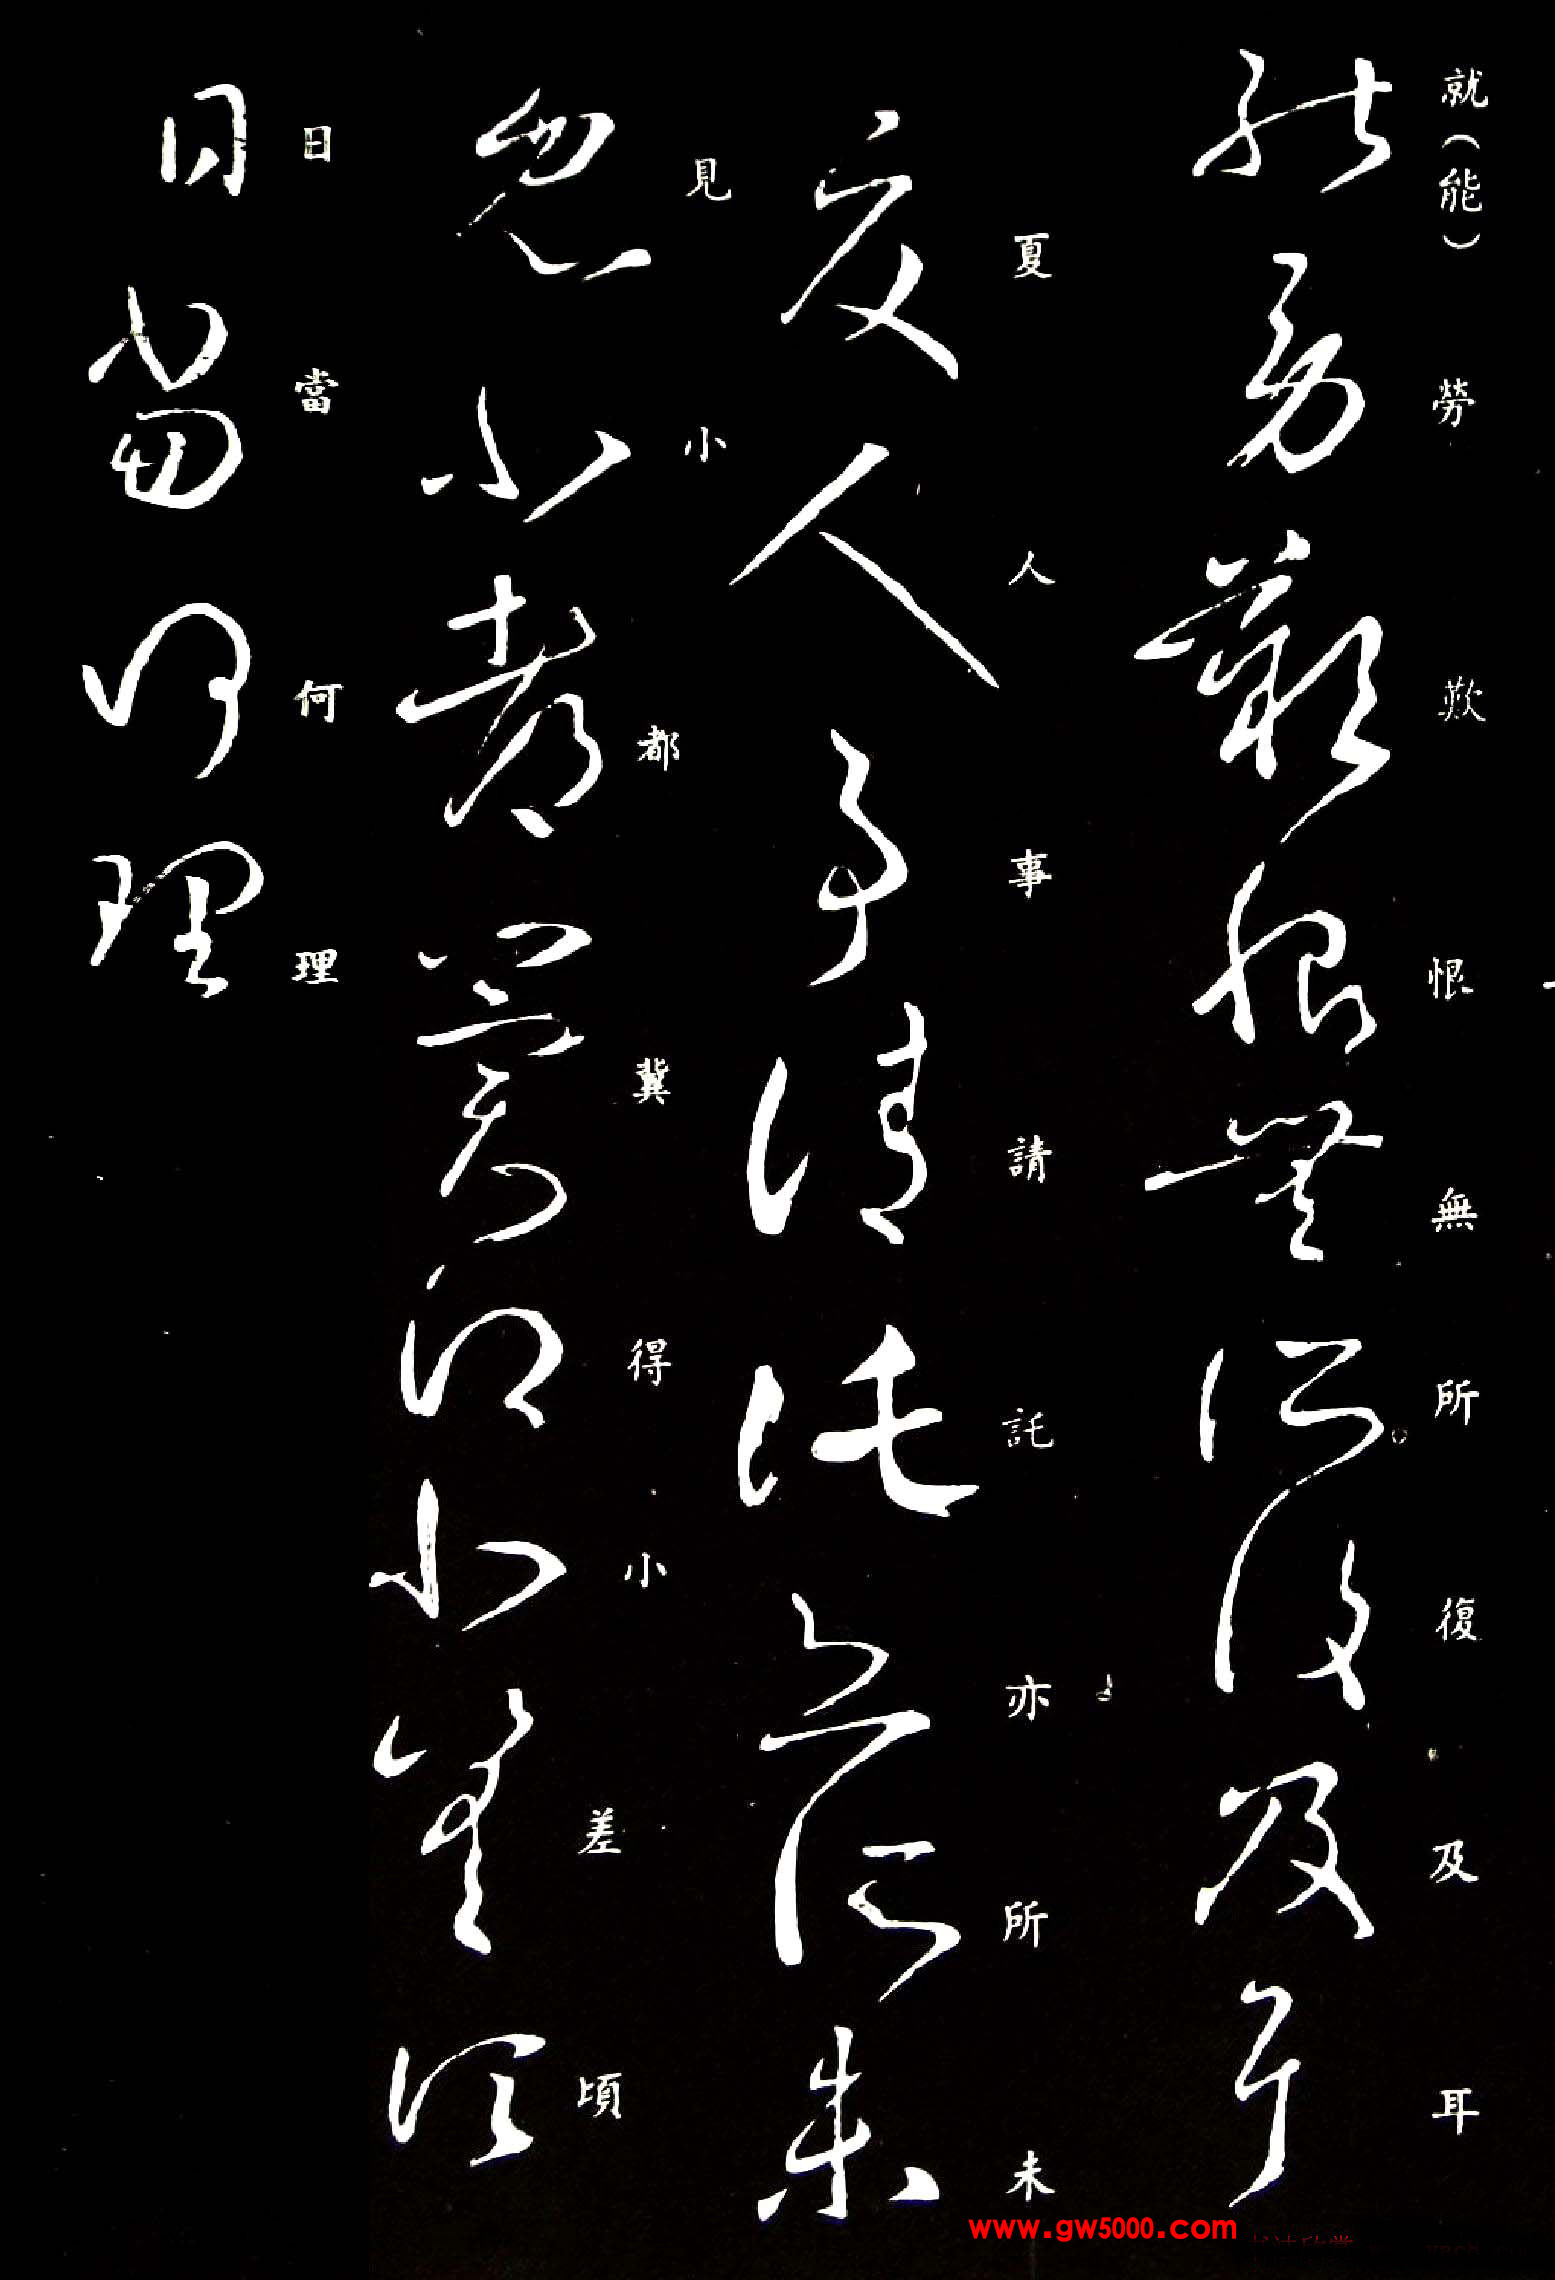 就(能)勞歎恨無所復及耳
夏人事請託亦所未
見小都冀得小差頃
日當何理
www.gw5000.com